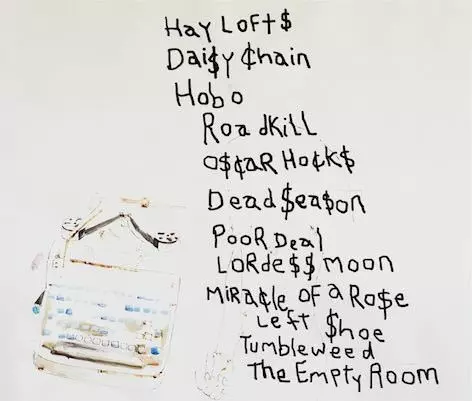 Hay Loft$
Dai$y ¢hain
Hobo
RoadKill
o$¢aR Ho¢k$
Dead $ea$on
PooR Deal
LoRde$$ moon
MiRa¢le oF a Ro$e
LeFt $hoe
Tumbleweed
The Empty Room